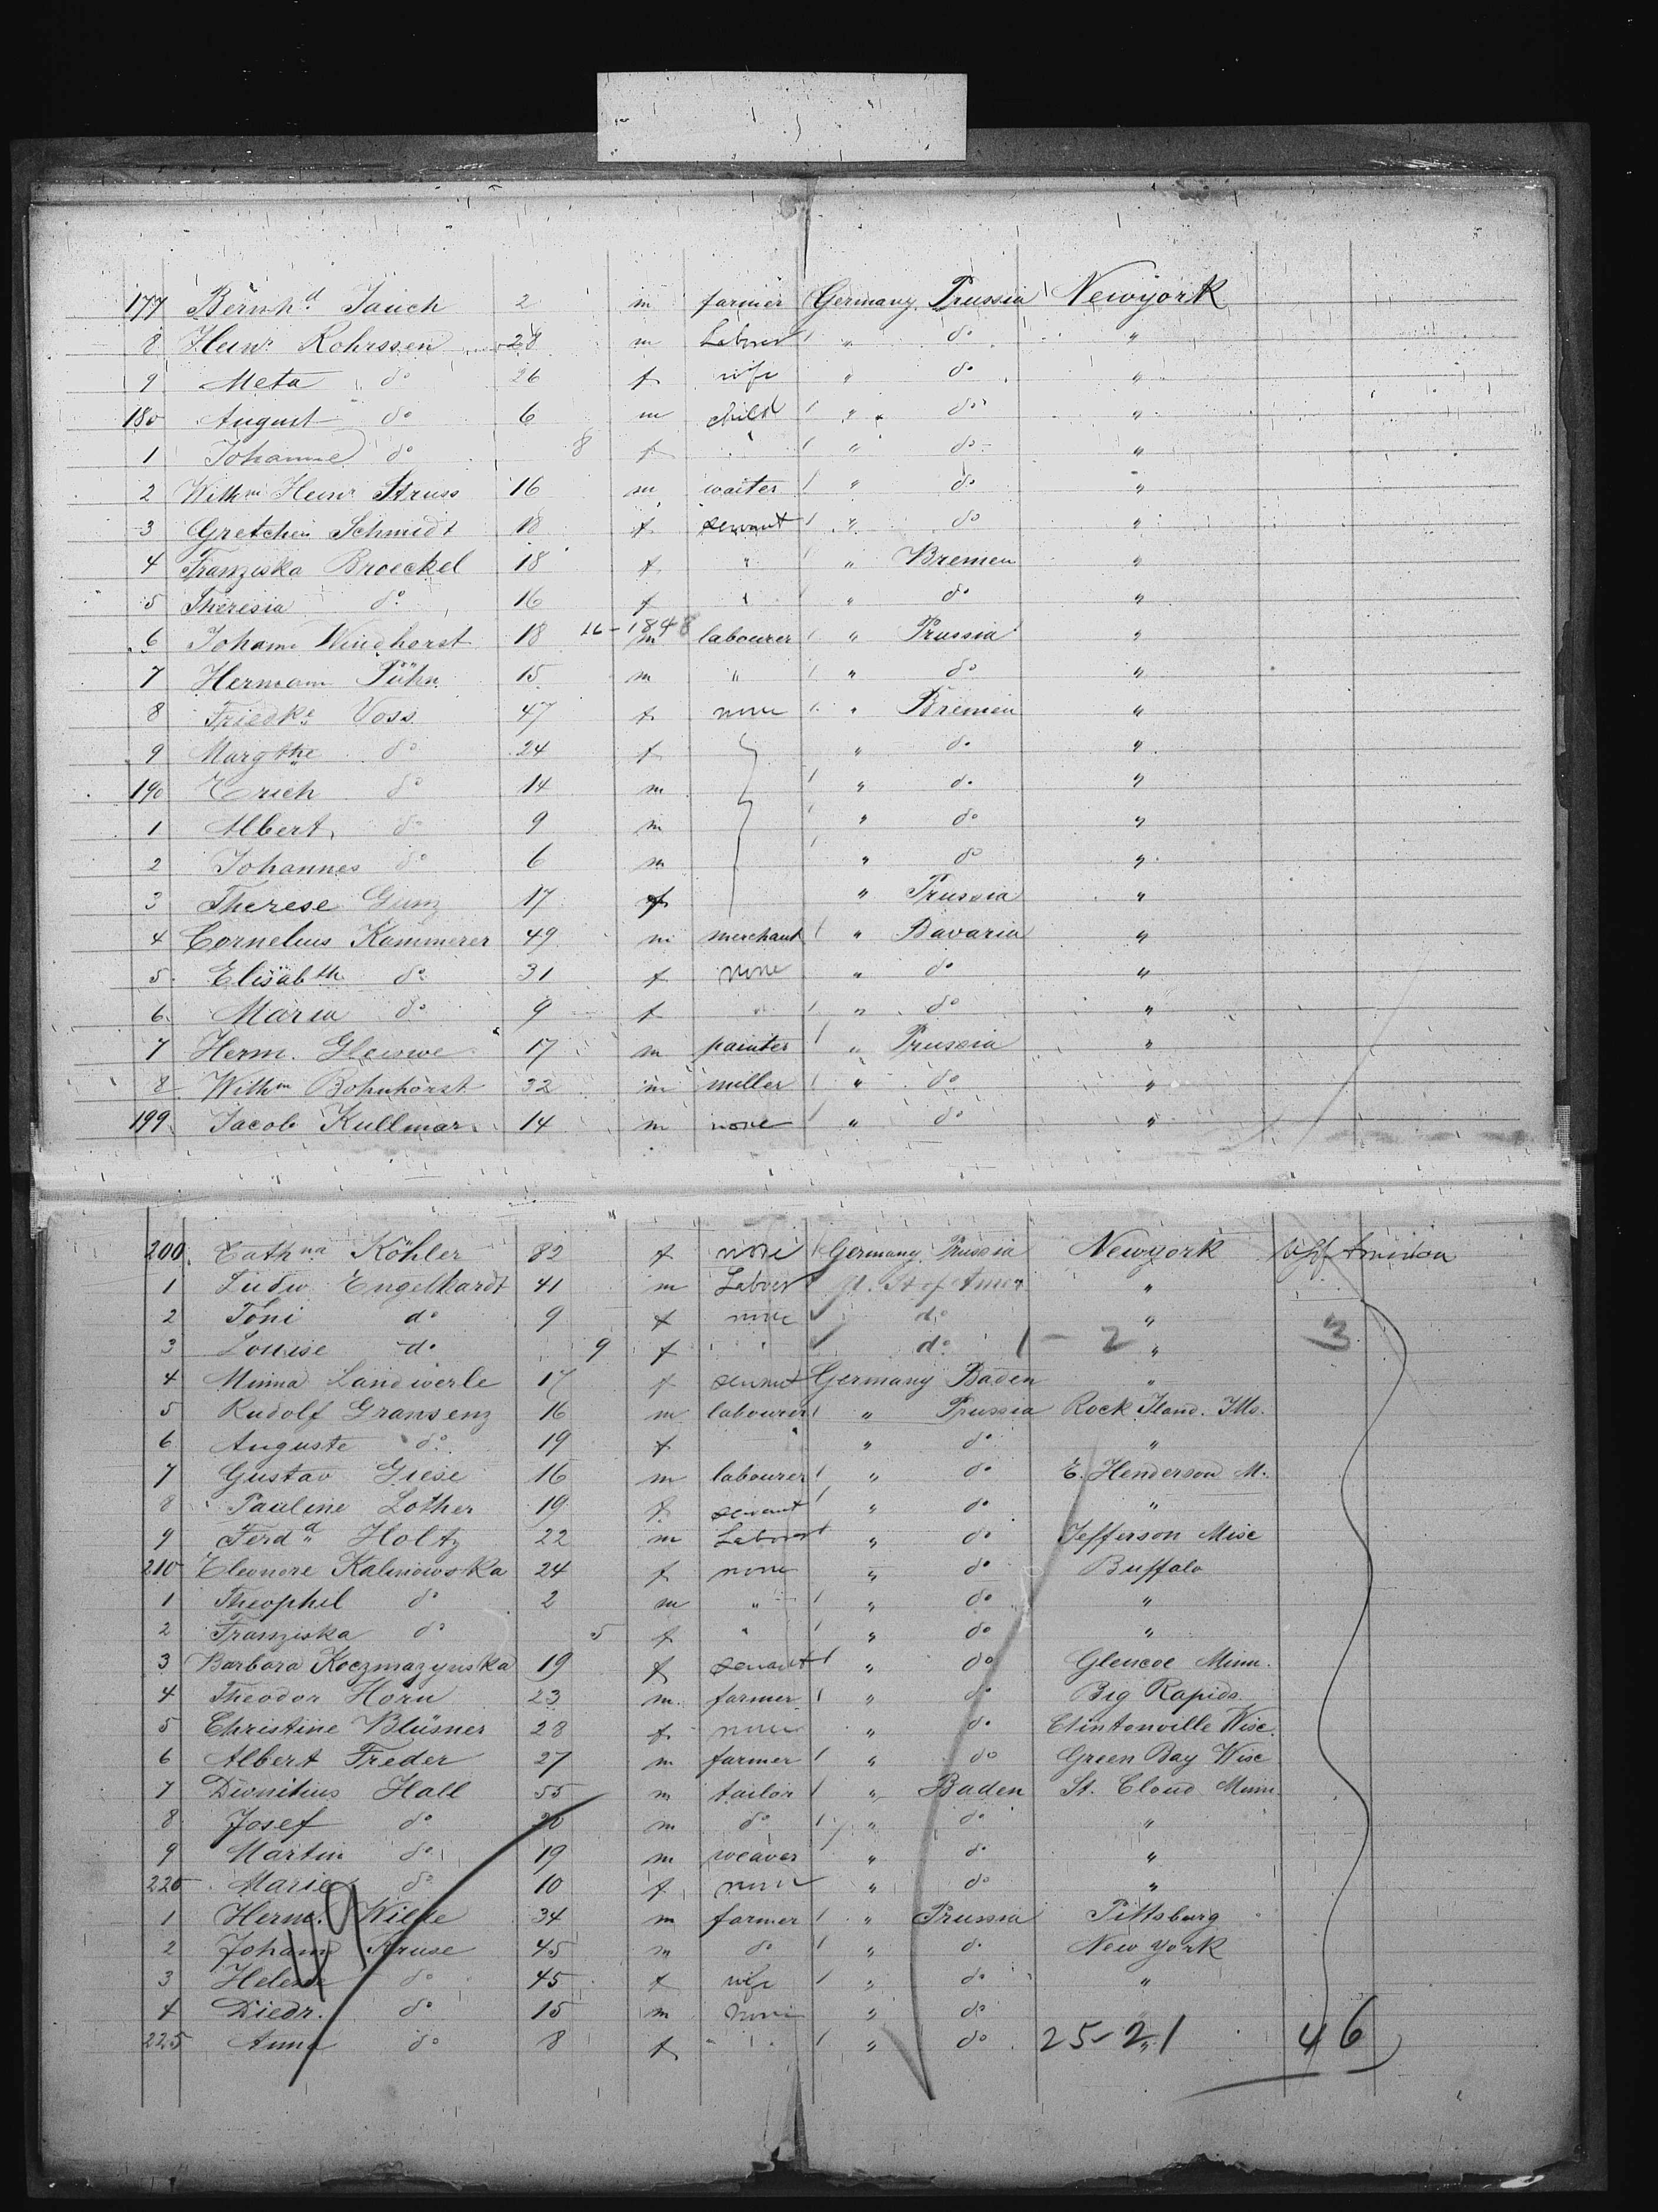 177 Bernhd Jauch 2 m farmer Germany Prussia Newyork
8 Heinr Rohrssen 28 m Labourer " do "
9 Meta do 26 f wife " do "
180 August do 6 m child " do "
1 Johanne do 8 f " " do "
2 Wilhm Heinr Struss 16 m waiter " do "
3 Gretchen Schmidt 18 f servant " do "
4 Franziska Broeckel 18 f " " Bremen "
5 Theresia do 16 f " " do "
6 Johann Windhorst 18 26-1848 m labourer " Prussia "
7 Hermann Pühn 15 m " " do "
8 Friedke Voss 47 f none " Bremen "
9 Margthe do 24 f " do "
190 Erich do 14 m " do "
1 Albert do 9 m " do "
2 Johannes do 6 m " do "
3 Therese Gunz 17 f " Prussia "
4 Cornelius Kammerer 49 m merchant " Bavaria "
5 Elisabth do 31 f none " do "
6 Maria do 9 f " " do "
7 Herm. Glewwe 17 m painter " Prussia "
8 Wilhm Bohnhorst 32 m miller " do "
199 Jacob Kullmar 14 m none " do "
200 Cathna Köhler 82 f none Germany Prussia Newyork
1 Ludw Engelhardt 41 m Labour U. St of Amer "
2 Toni do 9 f none do "
3 Louise do 9 f " do 1 - 2 " 3
4 Minna Landwerle 17 f servant Germany Baden "
5 Rudolf Gransenz 16 m labourer " Prussia Rock Iland. Ills.
6 Auguste do 19 f " " do "
7 Gustav Giese 16 m labourer " do E. Henderson M.
8 Pauline Lother 19 f servant " do "
9 Ferdd Holtz 22 m Labour " do Jefferson Misc
210 Eleonore Kalinowska 24 f none " do Buffalo
1 Theophil do 2 m " " do "
2 Franziska do 5 f " " do "
3 Barbara Koczmazynska 19 f servant " do Glencoe Minn.
4 Theodor Horn 23 m farmer " do Big Rapids
5 Christine Blüsner 28 f none " do Clintonville Wisc.
6 Albert Freder 27 m farmer " do Green Bay Wisc
7 Dionitius Hall 55 m tailor " Baden St. Cloud Minn.
8 Josef do m do " do "
9 Martin do 19 m weaver " do "
220 Marie do 10 f none " do "
1 Herm. Wilke 34 m farmer " Prussia Pittsburg
2 Johann Kruse 45 m do " do New York
3 Helene do 45 f wife " do "
4 Diedr. do 15 m none " do
225 Anna do 8 f " " do 25-21 " 46
49